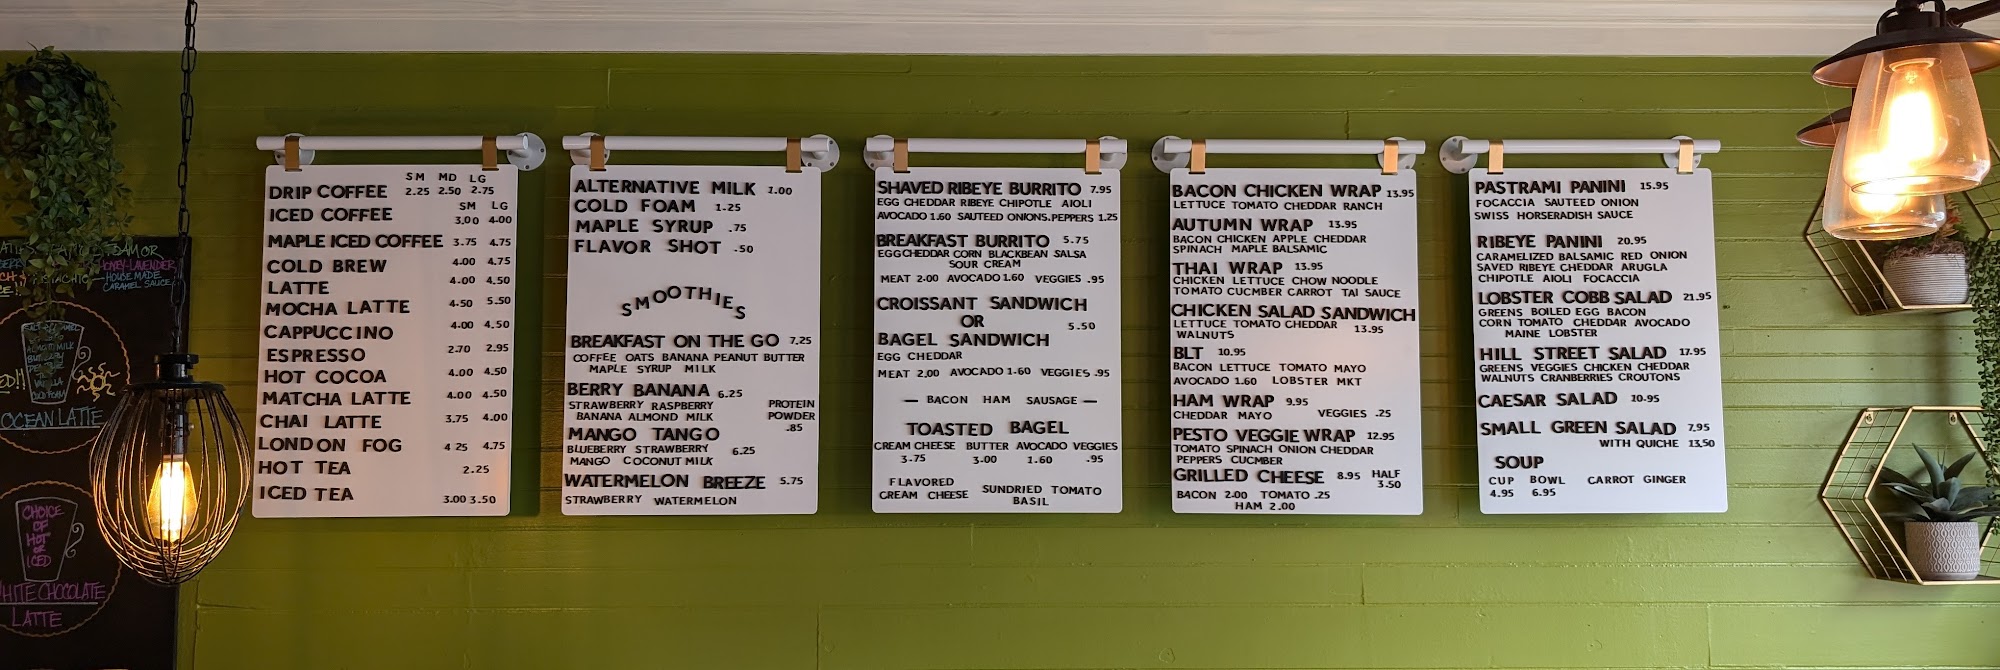 SM MD LG
DRIP COFFEE 2.25 2.50 2.75
SM LG
ICED COFFEE 3.00 4.00
MAPLE ICED COFFEE 3.75 4.75
COLD BREW 4.00 4.75
LATTE 4.00 4.50
MOCHA LATTE 4.50 5.50
CAPPUCCINO 4.00 4.50
ESPRESSO 2.70 2.95
HOT COCOA 4.00 4.50
MATCHA LATTE 4.00 4.50
CHAI LATTE 3.75 4.00
LONDON FOG 4 25 4.75
HOT TEA 2.25
ICED TEA 3.00 3.50
ALTERNATIVE MILK 1.00
COLD FOAM 1.25
MAPLE SYRUP .75
FLAVOR SHOT .50
SMOOTHIES
BREAKFAST ON THE GO 7.25
COFFEE OATS BANANA PEANUT BUTTER
MAPLE SYRUP MILK
BERRY BANANA 6.25
STRAWBERRY RASPBERRY
BANANA ALMOND MILK
PROTEIN
POWDER
.85
MANGO TANGO
BLUEBERRY STRAWBERRY 6.25
MANGO COCONUT MILK
WATERMELON BREEZE 5.75
STRAWBERRY WATERMELON
SHAVED RIBEYE BURRITO 7.95
EGG CHEDDAR RIBEYE CHIPOTLE AIOLI
AVOCADO 1.60 SAUTEED ONIONS.PEPPERS 1.25
BREAKFAST BURRITO 5.75
EGG CHEDDAR CORN BLACKBEAN SALSA
SOUR CREAM
MEAT 2.00 AVOCADO 1.60 VEGGIES .95
CROISSANT SANDWICH
OR 5.50
BAGEL SANDWICH
EGG CHEDDAR
MEAT 2.00 AVOCADO 1.60 VEGGIES .95
— BACON HAM SAUSAGE —
TOASTED BAGEL
CREAM CHEESE BUTTER AVOCADO VEGGIES
3.75 3.00 1.60 .95
FLAVORED
CREAM CHEESE
SUNDRIED TOMATO
BASIL
BACON CHICKEN WRAP 13.95
LETTUCE TOMATO CHEDDAR RANCH
AUTUMN WRAP 13.95
BACON CHICKEN APPLE CHEDDAR
SPINACH MAPLE BALSAMIC
THAI WRAP 13.95
CHICKEN LETTUCE CHOW NOODLE
TOMATO CUCMBER CARROT TAI SAUCE
CHICKEN SALAD SANDWICH
LETTUCE TOMATO CHEDDAR 13.95
WALNUTS
BLT 10.95
BACON LETTUCE TOMATO MAYO
AVOCADO 1.60 LOBSTER MKT
HAM WRAP 9.95
CHEDDAR MAYO VEGGIES .25
PESTO VEGGIE WRAP 12.95
TOMATO SPINACH ONION CHEDDAR
PEPPERS CUCMBER
GRILLED CHEESE 8.95 HALF
3.50
BACON 2.00 TOMATO .25
HAM 2.00
PASTRAMI PANINI 15.95
FOCACCIA SAUTEED ONION
SWISS HORSERADISH SAUCE
RIBEYE PANINI 20.95
CARAMELIZED BALSAMIC RED ONION
SAVED RIBEYE CHEDDAR ARUGLA
CHIPOTLE AIOLI FOCACCIA
LOBSTER COBB SALAD 21.95
GREENS BOILED EGG BACON
CORN TOMATO CHEDDAR AVOCADO
MAINE LOBSTER
HILL STREET SALAD 17.95
GREENS VEGGIES CHICKEN CHEDDAR
WALNUTS CRANBERRIES CROUTONS
CAESAR SALAD 10.95
SMALL GREEN SALAD 7.95
WITH QUICHE 13.50
SOUP
CUP BOWL CARROT GINGER
4.95 6.95
HONEY-LAVENDER
HOUSE MADE
CARAMEL SAUCE
OCEAN LATTE
CHOICE
OF
HOT
OR
ICED
WHITE CHOCOLATE
LATTE